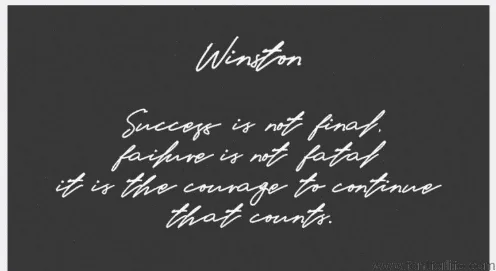 Winston
Success is not final,
failure is not fatal
it is the courage to continue
that counts.